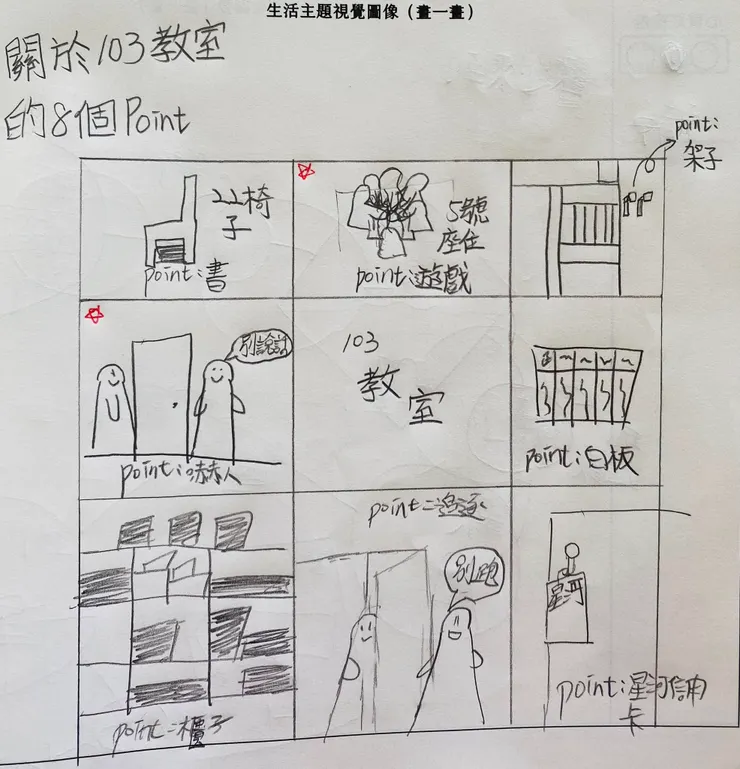 生活主題視覺圖像（畫一畫）
關於103教室
的8個Point
point:
架子
22椅
子
point:書
5號
座位
point:遊戲
別說話
point:嚇人
103
教
室
point:白板
point:追逐
別跑
point:櫃子
星河
point:星河信用
卡